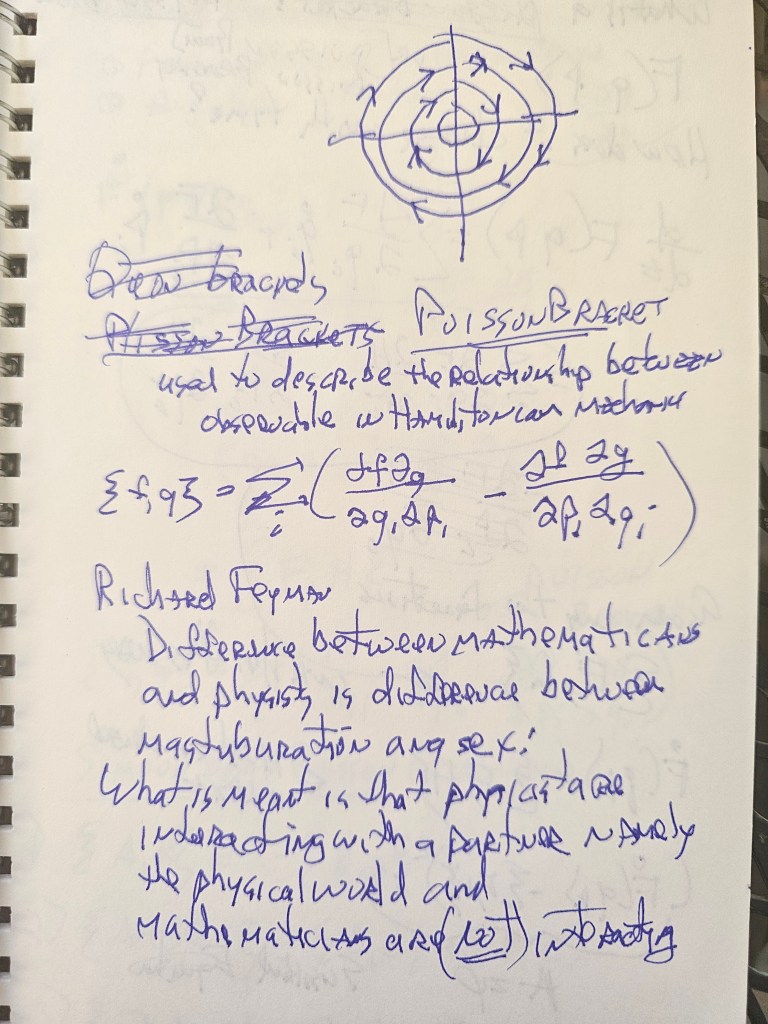 Poisson Bracket
used to describe the relationship between
observable in Hamiltonian Mechanic
{f,g} = Σ_i ( ∂f ∂g / ∂q_i ∂p_i - ∂f ∂g / ∂p_i ∂q_i )
Richard Feyman
Difference between mathematicans
and physists is difference between
mastuburation and sex.
What is meant is that physicist are
interacting with a partner namely
the physical world and
mathematicians are (not) interacting